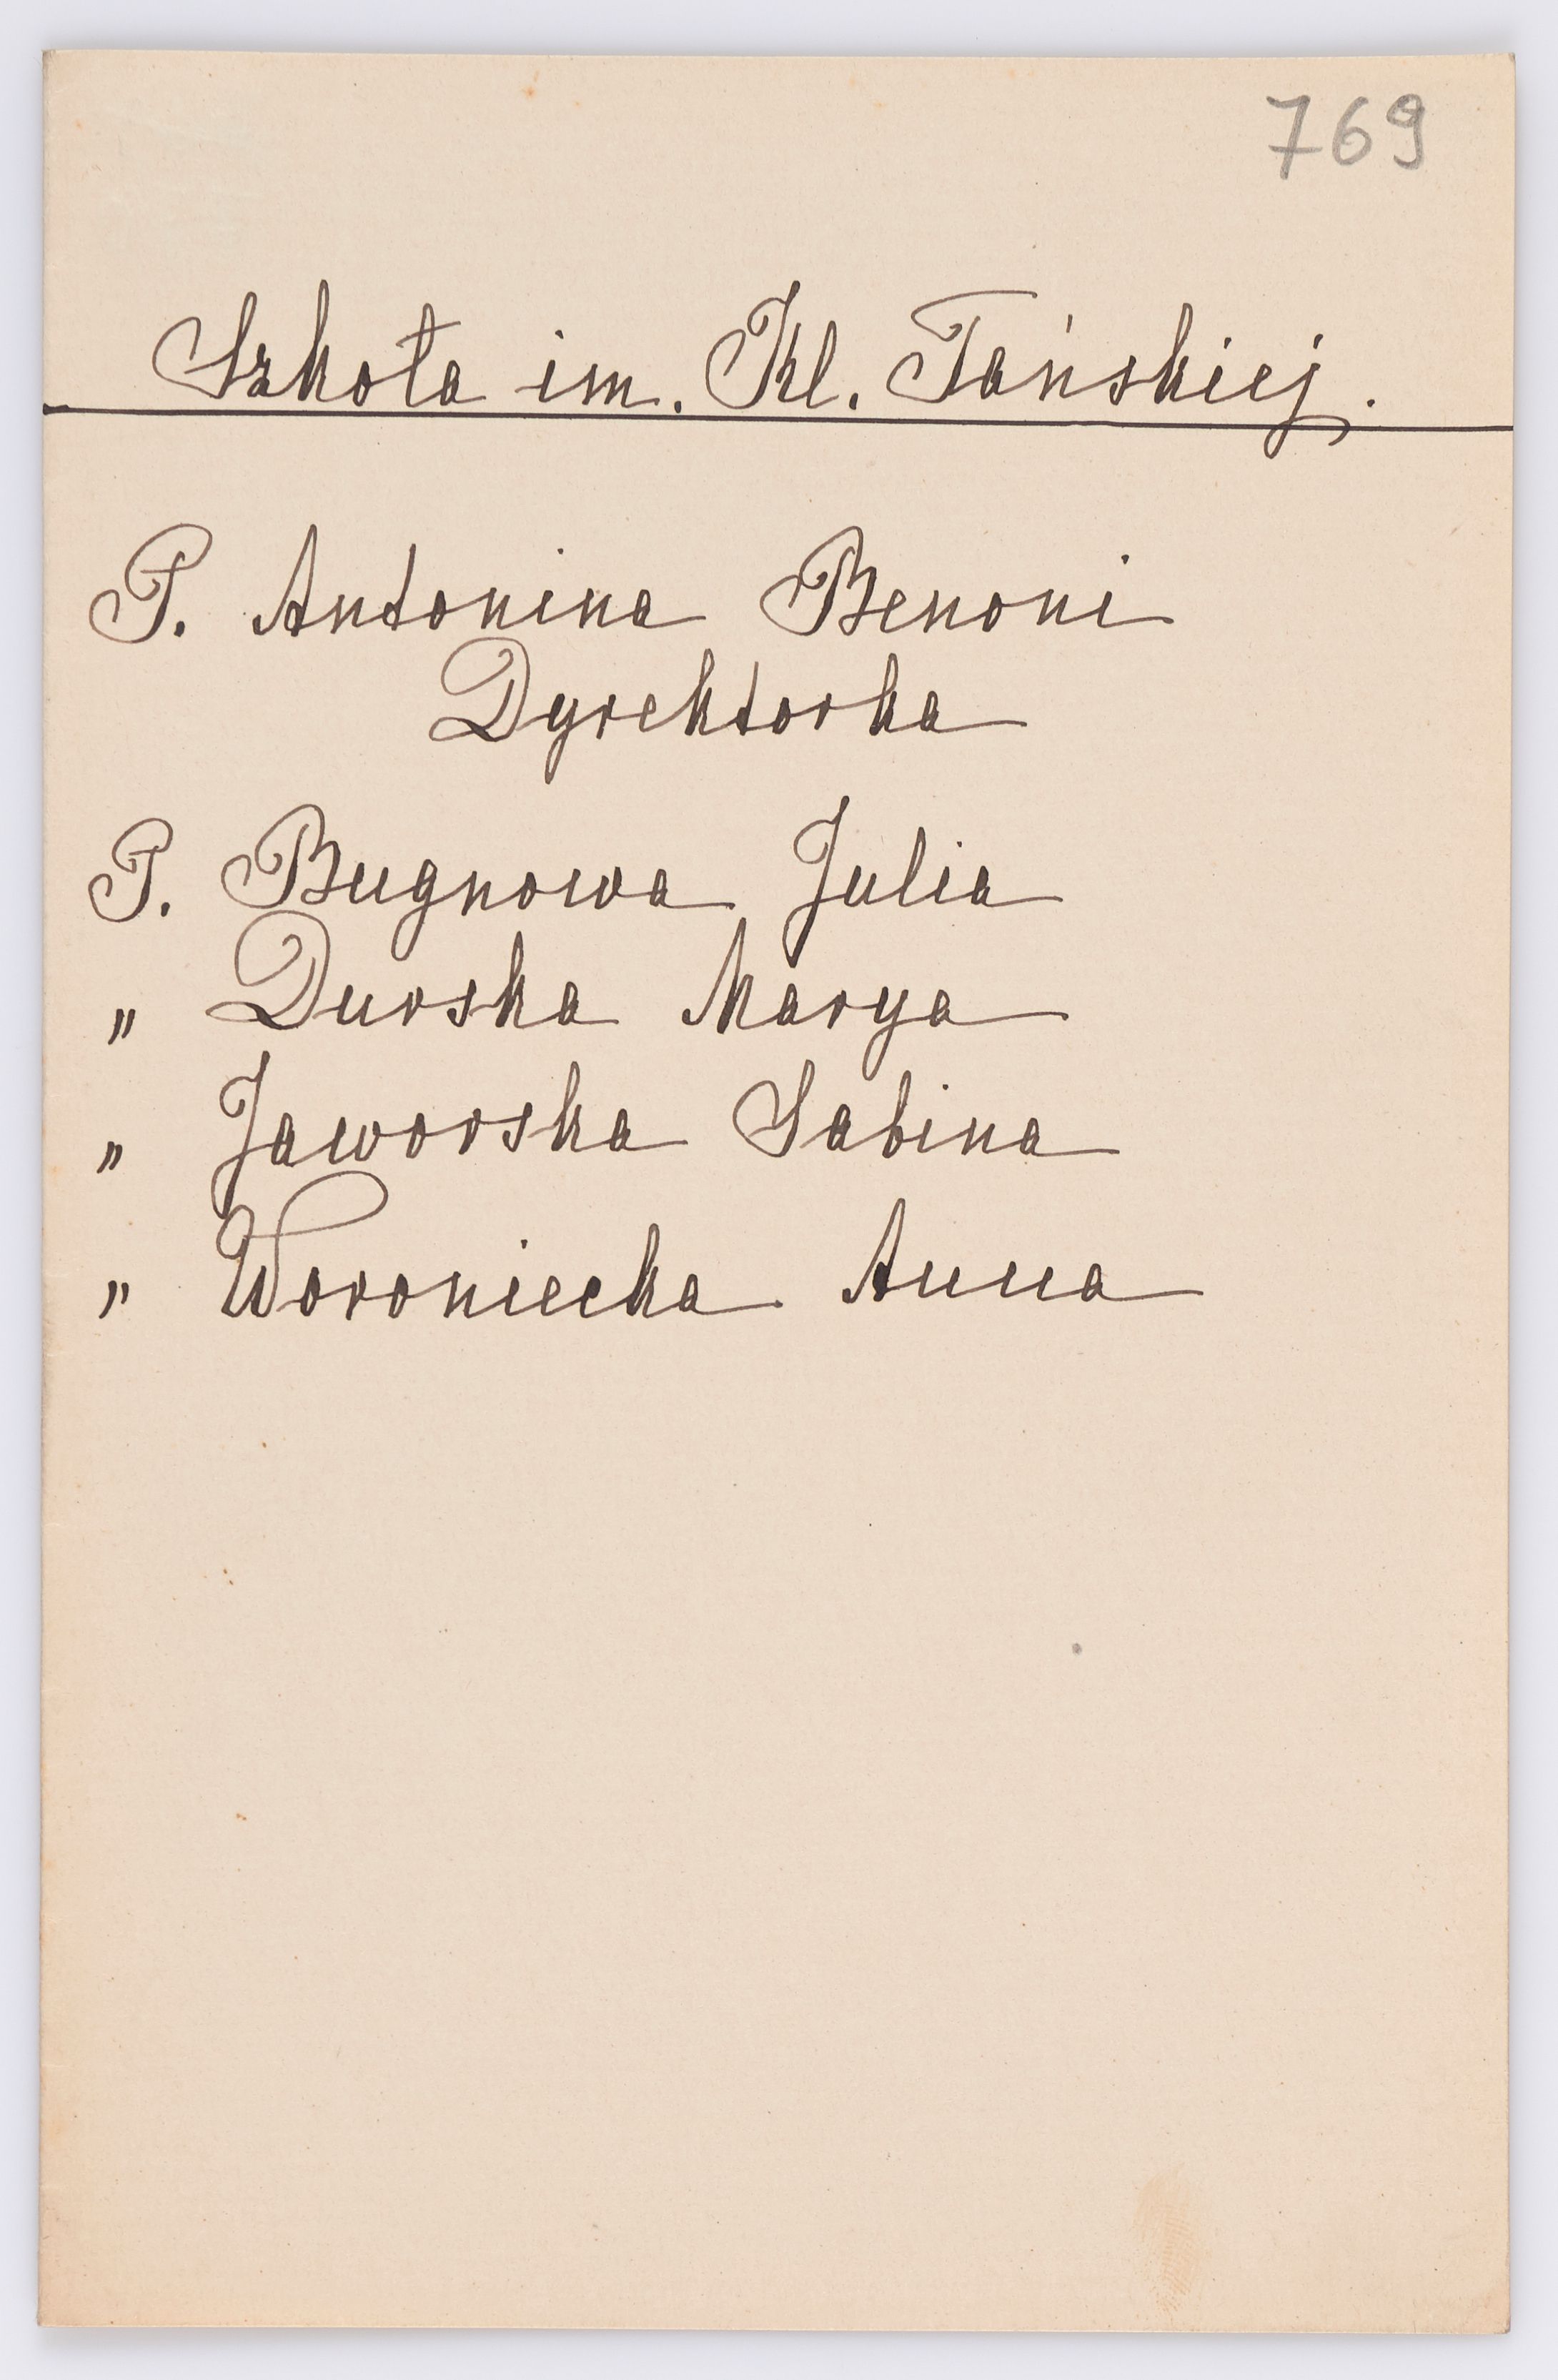 769
Szkoła im. Kl. Tańskiej.
P. Antonina Benoni
Dyrektorka
P. Bugnowa Julia
„ Durska Marya
„ Jaworska Sabina
„ Woroniecka Anna